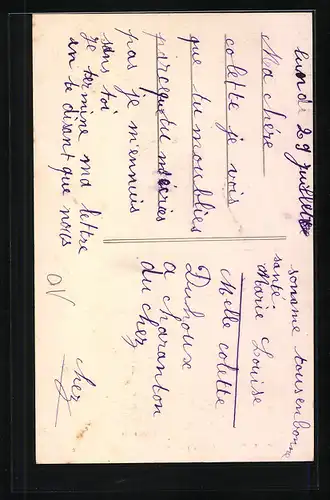 lundi 29 juillet
Ma chère
colette je vois
que tu moublies
parceque tu mécries
pas je m'ennuis
sans toi
je termine ma lettre
en te disant que nous
somme tousenbonne
santé
Marie Louise
Melle colette
Duhoux
a charanton
du chez
cher